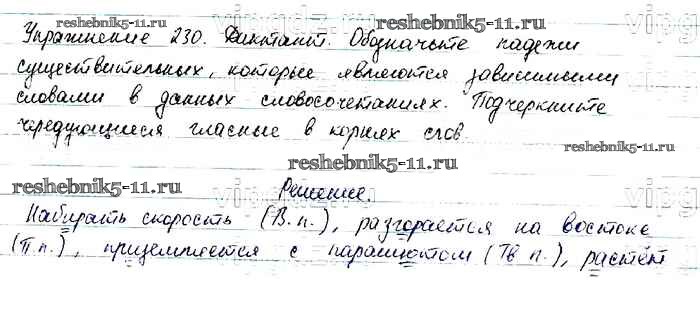 reshebnik5-11.ru
reshebnik5-11.ru
Упражнение 230. Диктант. Обозначьте падежи
существительных, которые являются зависимыми
словами в данных словосочетаниях. Подчеркните
чередующиеся гласные в корнях слов.
reshebnik5-11.ru
reshebnik5-11.ru
reshebnik5-11.ru
Решение.
Набирать скорость (В.п.), разгорается на востоке
(П.п.), приземляется с парашютом (Тв п.), растёт